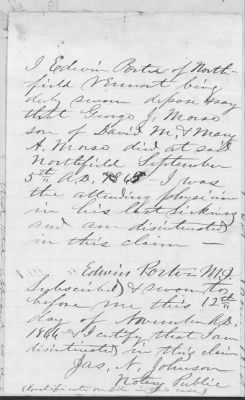 I Edwin Porter of North-
field Vermont being
duly sworn depose & say
that George J. Morse
son of David M. & Mary
A. Morse died at said
Northfield September
5th A.D. 186 I was
the attending physician
in his last sickness
and am disinterested
in this claim —
Edwin Porter M.D.
Subscribed & sworn to
before me this 12th
day of November A.D.
1866 & I certify that I am
disinterested in this claim
Jas. A. Johnson
Notary Public
(Certificate on file in